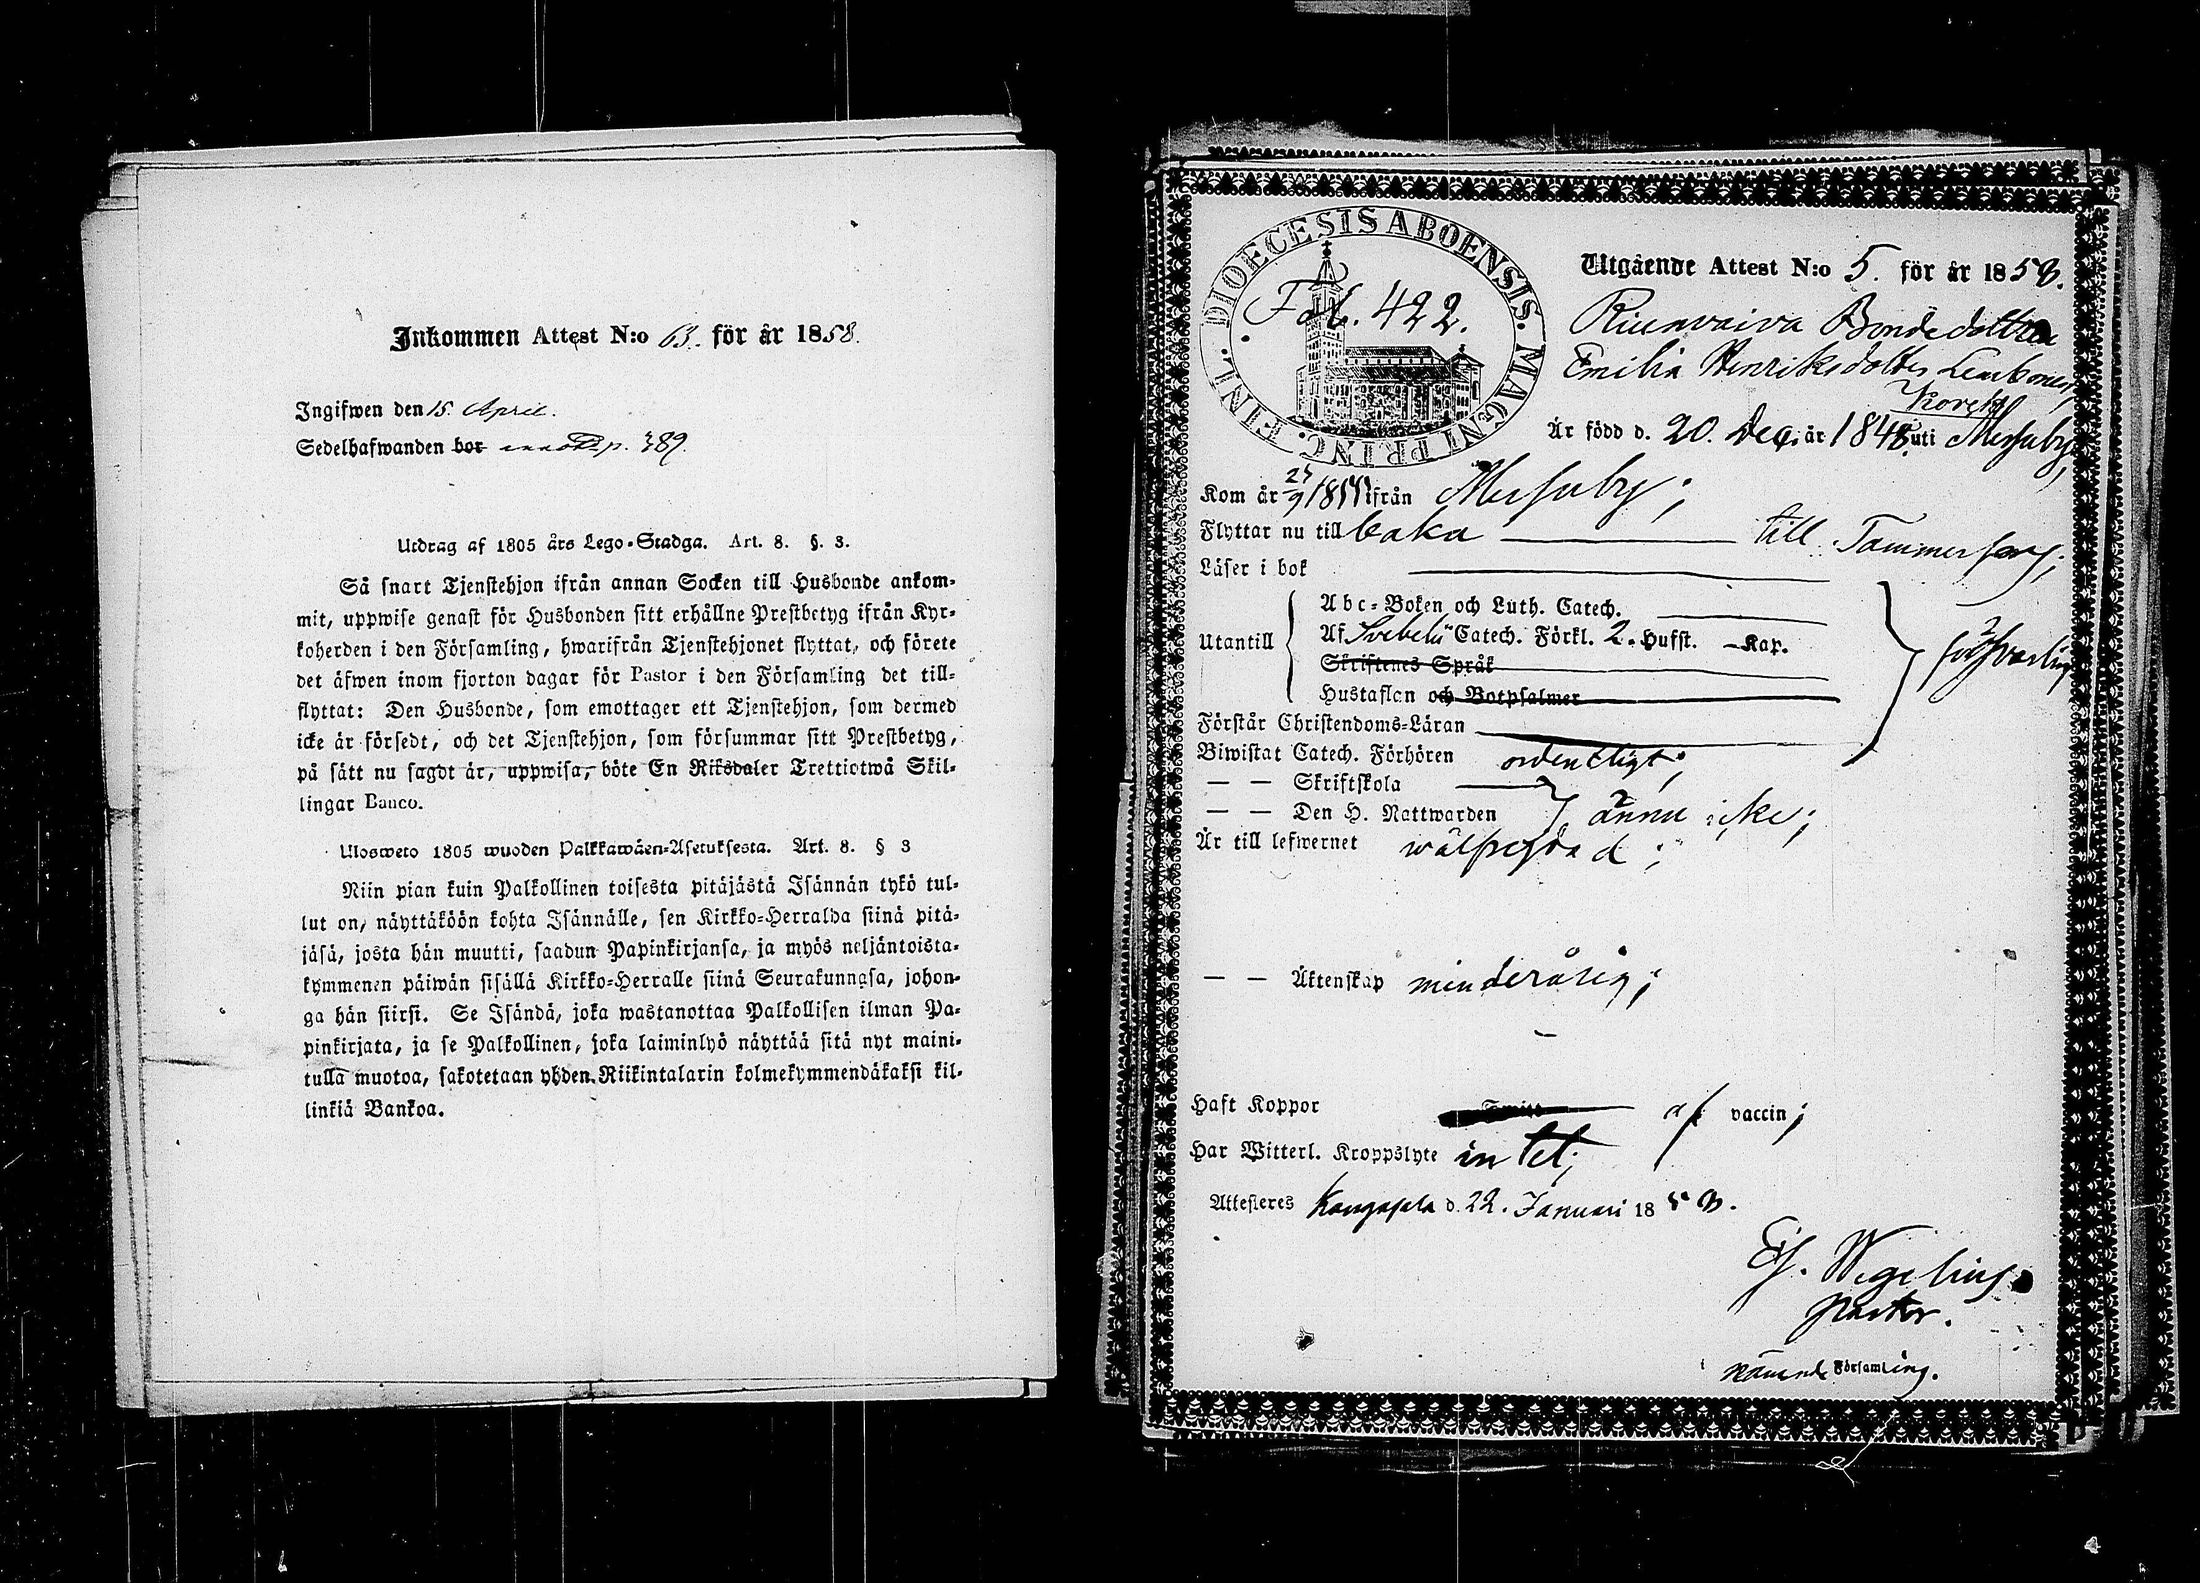 Inkommen Attest N:o 63. för år 1858.
Ingifwen den 15. April.
Sedelhafwanden bor p. 389.
Utdrag af 1805 års Lego-Stadga. Art. 8. §. 3.
Så snart Tjenstehjon ifrån annan Socken till Husbonde ankom-
mit, uppwise genast för Husbonden sitt erhållne Prestbetyg ifrån Kyr-
koherden i den Församling, hwarifrån Tjenstehjonet flyttat, och förete
det äfwen inom fjorton dagar för Pastor i den Församling det till-
flyttat: Den Husbonde, som emottager ett Tjenstehjon, som dermed
icke är försedt, och det Tjenstehjon, som försummar sitt Prestbetyg,
på sätt nu sagdt är, uppwisa, böte En Riksdaler Trettiotwå Skil-
lingar Banco.
Ulosweto 1805 wuoden Palkkawäen-Asetuksesta. Art. 8. § 3
Niin pian kuin Palkollinen toisesta pitäjästä Isännän tykö tul-
lut on, näyttäköön kohta Isännälle, sen Kirkko-Herralda siinä pitä-
jäsä, josta hän muutti, saadun Papinkirjansa, ja myös neljäntoista-
kymmenen päiwän sisällä Kirkko-Herralle siinä Seurakunnasa, johon-
ga hän siirsi. Se Isändä, joka wastanottaa Palkollisen ilman Pa-
pinkirjata, ja se Palkollinen, joka laiminlyö näyttää sitä nyt maini-
tulla muotoa, sakotetaan yhden Riikintalarin kolmekymmendäkaksi kil-
linkiä Bankoa.
DIOECESIS ABOENSIS. MAGNI PRINC. FINL.
Fol. 422.
Utgående Attest N:o 5. för år 1858.
Bondedottren
Emilia Henriksdotter
Är född d. 20. Dec. år 1848. uti Messuby
Kom år 27/9 1855 ifrån Messuby;
Flyttar nu till baka till Tammerfors;
Läser i bok
Utantill
Abc-Boken och Luth. Catech.
Af Svebelii Catech. Förkl. 2. Hufst. — Kap.
Skriftenes Språk
Hustaflan och Botpsalmer
försvarligt
Förstår Christendoms-Läran
Biwistat Catech. Förhören ordentligt;
— — Skriftskola
— — Den H. Nattwarden ännu icke;
Är till lefwernet wälfrejdad;
— — Äktenskap minderårig;
Haft Koppor af vaccin;
Har Witterl. Kroppslyte intet;
Attesteres Kangasala d. 22. Januari 1858.
Wegelius
Pastor.
i nämnde Församling.